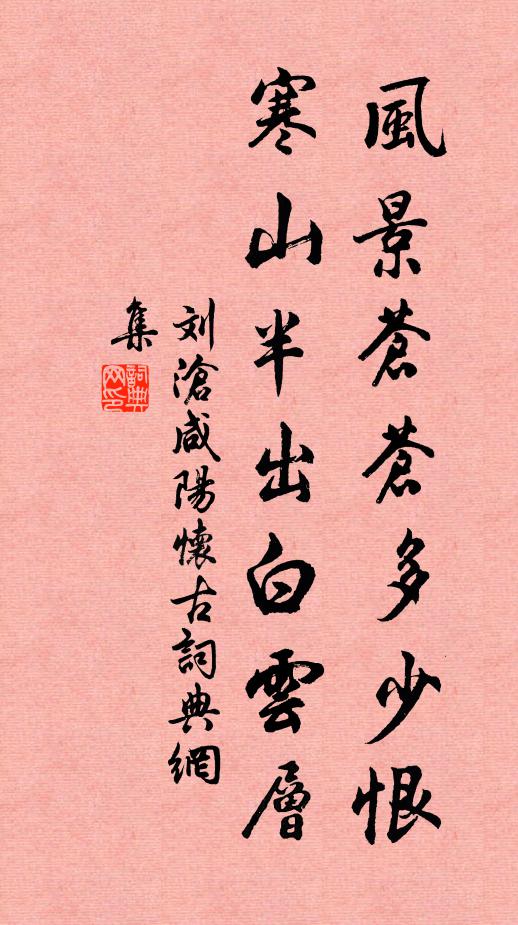 風景蒼蒼多少恨
寒山半出白雲層
刘滄咸陽懷古詞典網
集
詞典
网印